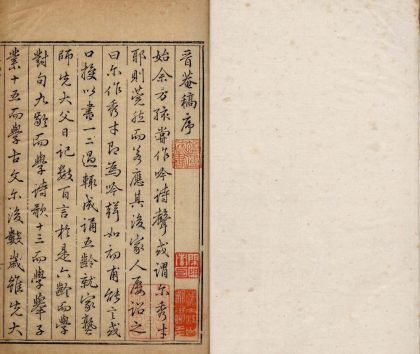 晉菴稿序
始余方孩嘗作吟詩聲或謂尔秀才
耶則莞然而若應其後家人屢詔之
曰尔作秀才即為吟聲如初甫能言或
口授以書一二過輒成誦五齡就家塾
師先大父日記數百言於是六齡而學
對句九齡而學詩歌十三而學舉子
業十五而學古文尔後數歲雖先大